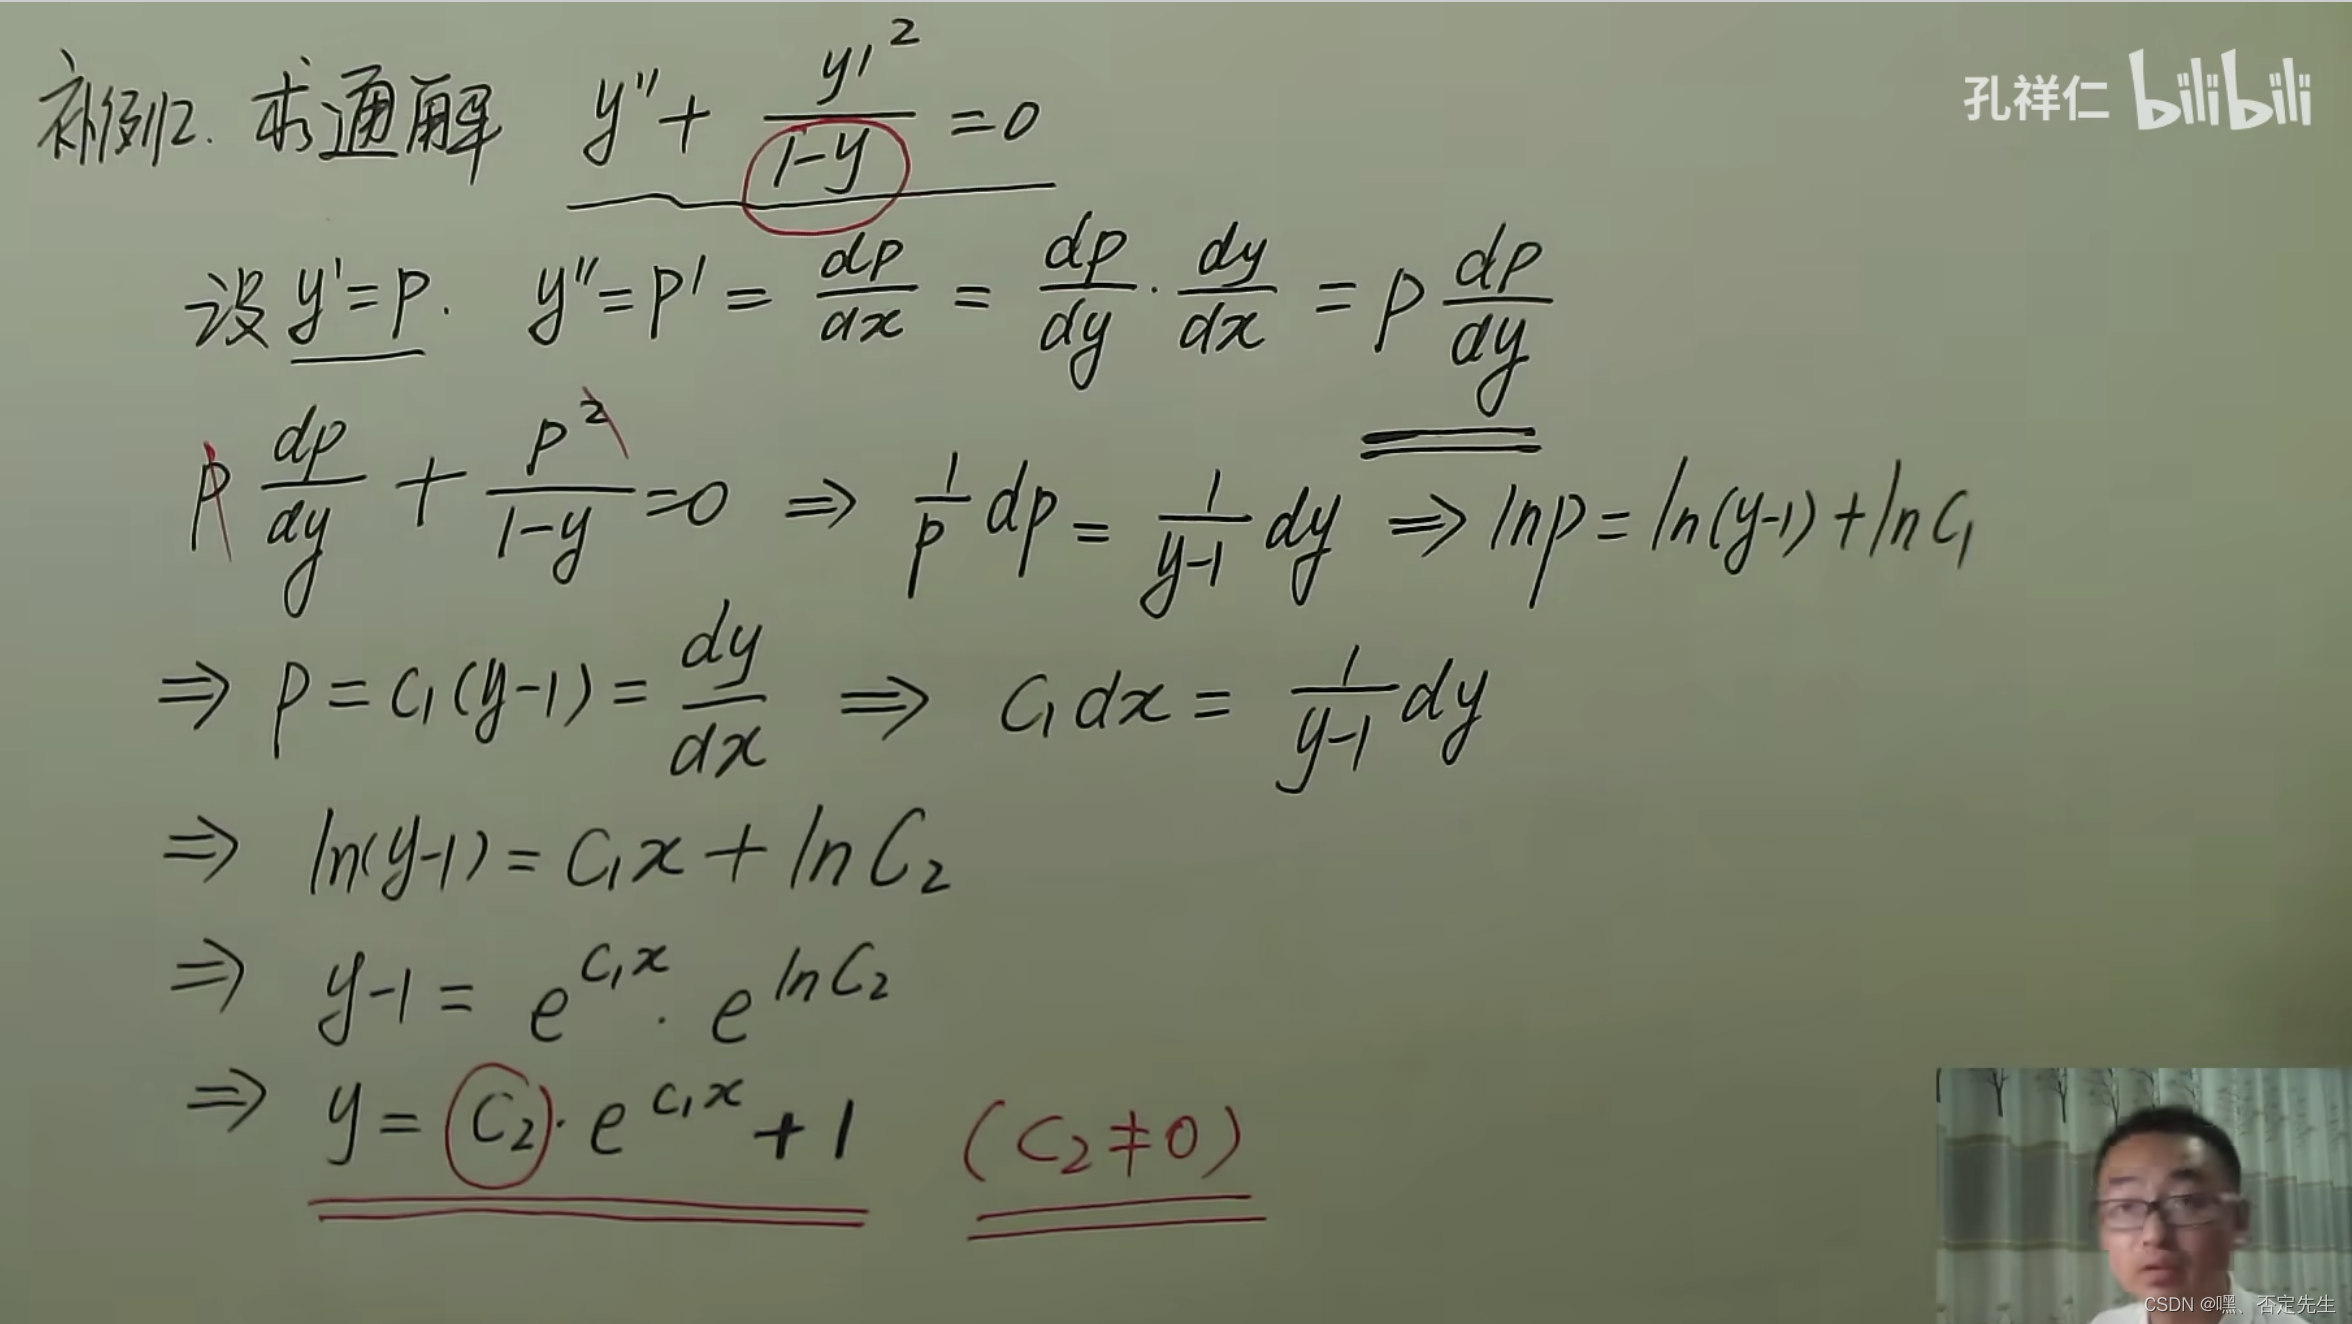 补例2. 求通解 y''+ y'²/(1-y) =0
孔祥仁 bilibili
设 y'=p. y''=p' = dp/dx = dp/dy · dy/dx = p dp/dy
p dp/dy + p²/(1-y) =0 ⇒ 1/p dp = 1/(y-1) dy ⇒ lnp = ln(y-1)+lnC₁
⇒ p = C₁(y-1) = dy/dx ⇒ C₁dx = 1/(y-1) dy
⇒ ln(y-1) = C₁x + lnC₂
⇒ y-1 = e^(C₁x) · e^(lnC₂)
⇒ y = C₂ · e^(C₁x) + 1 (C₂≠0)
CSDN @嘿、否定先生